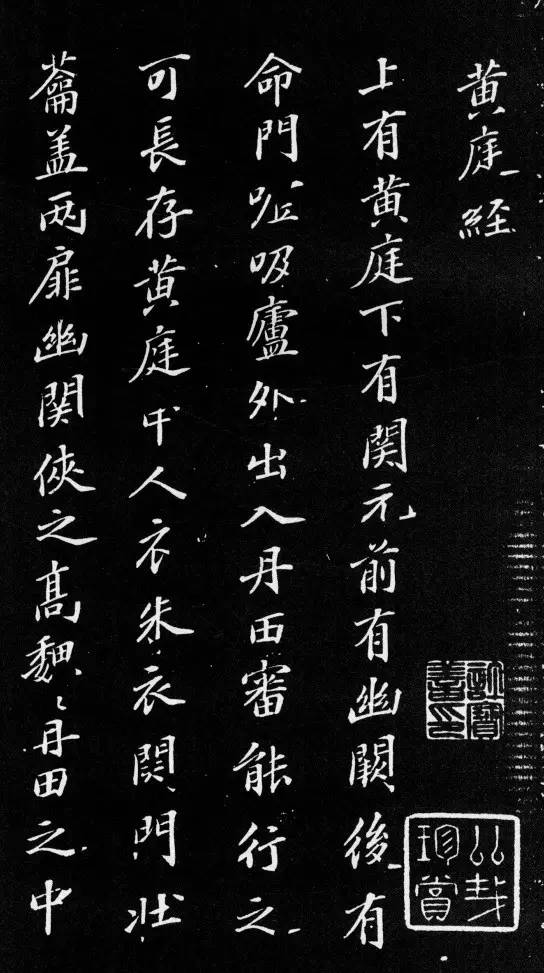 黄庭経
上有黄庭下有関元前有幽闕後有
命門呼吸廬外出入丹田審能行之
可長存黄庭中人衣朱衣関門壮
蘥盖两扉幽関侠之高魏〻丹田之中
珍賞